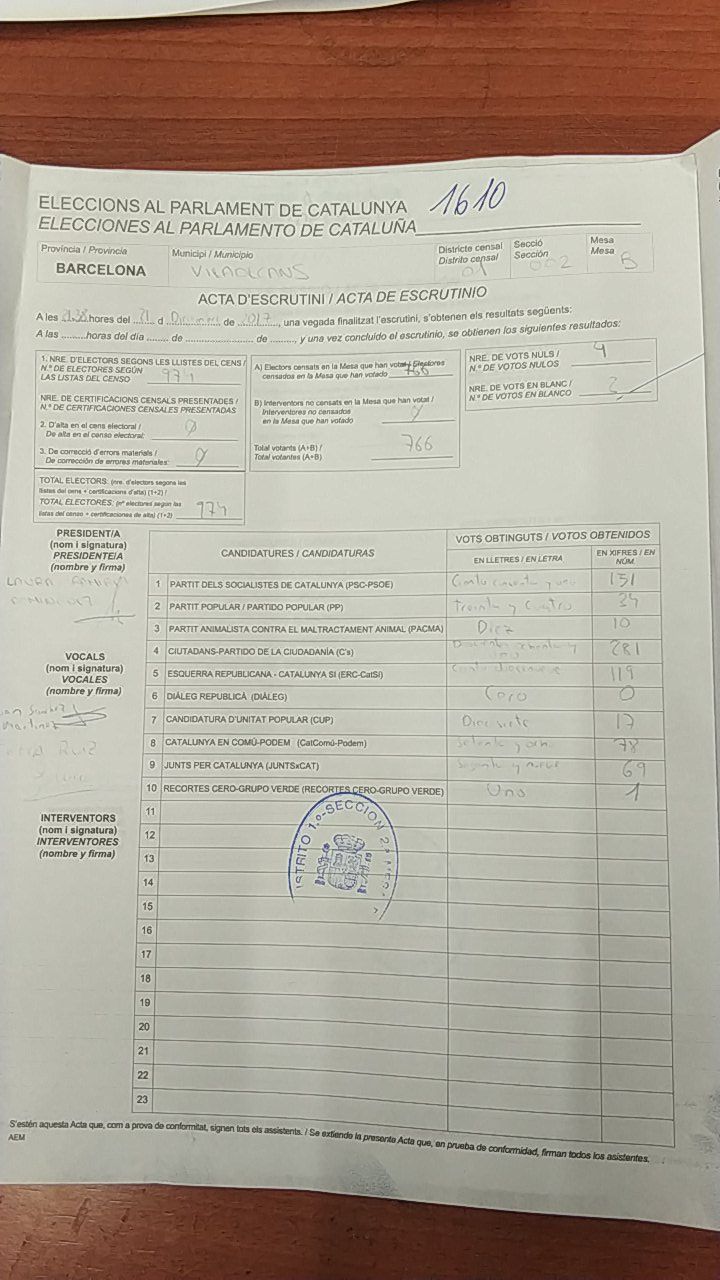 ELECCIONS AL PARLAMENT DE CATALUNYA 1610
ELECCIONES AL PARLAMENTO DE CATALUÑA
Província / Provincia
BARCELONA
Municipi / Municipio
VILADECANS
Districte censal
Distrito censal
01
Secció
Sección
002
Mesa
Mesa
B
ACTA D'ESCRUTINI / ACTA DE ESCRUTINIO
A les hores del 21 d de 2017, una vegada finalitzat l'escrutini, s'obtenen els resultats següents:
A las ......... horas del día ....... de .......................... de ........, y una vez concluido el escrutinio, se obtienen los siguientes resultados:
1. NRE. D'ELECTORS SEGONS LES LLISTES DEL CENS /
N.º DE ELECTORES SEGÚN
LAS LISTAS DEL CENSO 974
NRE. DE CERTIFICACIONS CENSALS PRESENTADES /
N.º DE CERTIFICACIONES CENSALES PRESENTADAS
2. D'alta en el cens electoral / 0
De alta en el censo electoral:
3. De correcció d'errors materials /
De corrección de errores materiales: 0
TOTAL ELECTORS: (nre. d'electors segons les
llistes del cens + certificacions d'alta) (1+2) /
TOTAL ELECTORES: (nº electores según las
listas del censo + certificaciones de alta) (1+2) 974
A) Electors censats en la Mesa que han votat / Electores
censados en la Mesa que han votado 766
B) Interventors no censats en la Mesa que han votat /
Interventores no censados
en la Mesa que han votado 0
Total votants (A+B) /
Total votantes (A+B) 766
NRE. DE VOTS NULS / 4
N.º DE VOTOS NULOS
NRE. DE VOTS EN BLANC / 2
N.º DE VOTOS EN BLANCO
PRESIDENT/A
(nom i signatura)
PRESIDENTE/A
(nombre y firma)
LAURA
VOCALS
(nom i signatura)
VOCALES
(nombre y firma)
Martinez
Ruiz
INTERVENTORS
(nom i signatura)
INTERVENTORES
(nombre y firma)
CANDIDATURES / CANDIDATURAS
VOTS OBTINGUTS / VOTOS OBTENIDOS
EN LLETRES / EN LETRA
EN XIFRES / EN NÚM.
1 PARTIT DELS SOCIALISTES DE CATALUNYA (PSC-PSOE) Ciento cincuenta y uno 151
2 PARTIT POPULAR / PARTIDO POPULAR (PP) Treinta y cuatro 34
3 PARTIT ANIMALISTA CONTRA EL MALTRACTAMENT ANIMAL (PACMA) Diez 10
4 CIUTADANS-PARTIDO DE LA CIUDADANÍA (C's) 281
5 ESQUERRA REPUBLICANA - CATALUNYA SI (ERC-CatSí) Ciento diecinueve 119
6 DIÀLEG REPUBLICÀ (DIÀLEG) Cero 0
7 CANDIDATURA D'UNITAT POPULAR (CUP) Diecisiete 17
8 CATALUNYA EN COMÚ-PODEM (CatComú-Podem) Setenta y ocho 78
9 JUNTS PER CATALUNYA (JUNTSxCAT) Sesenta y nueve 69
10 RECORTES CERO-GRUPO VERDE (RECORTES CERO-GRUPO VERDE) Uno 1
11
12
13
14
15
16
17
18
19
20
21
22
23
ISTRITO 1.º-SECCION 2.ª
S'estén aquesta Acta que, com a prova de conformitat, signen tots els assistents. / Se extiende la presente Acta que, en prueba de conformidad, firman todos los asistentes.
AEM